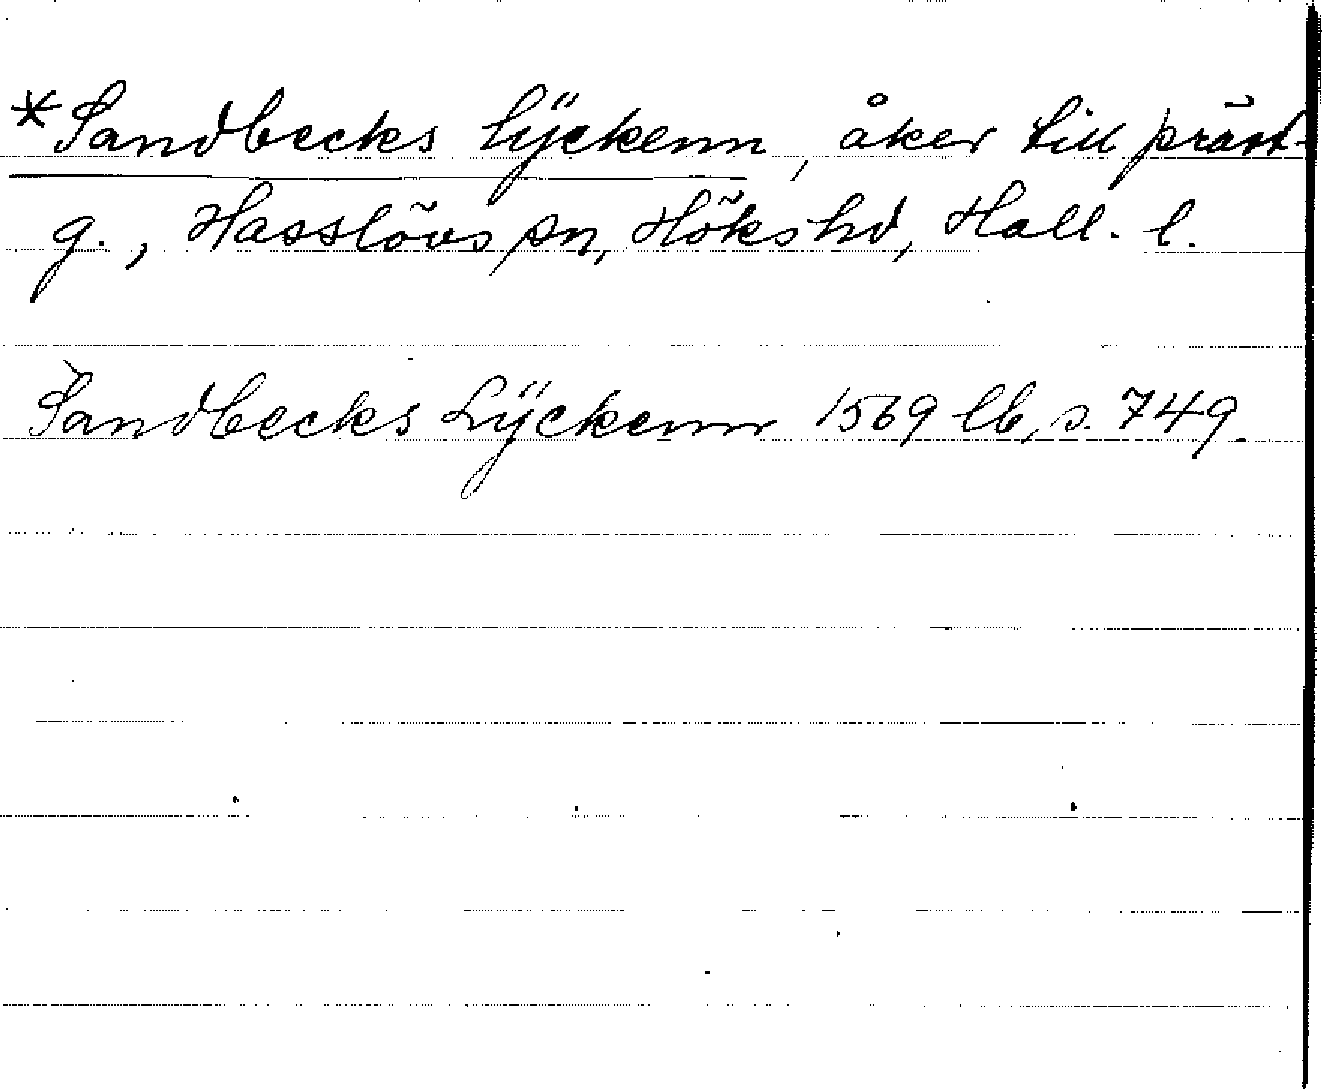 *Sandbecks Lÿckenn, åker till präst-
g., Hasslövs sn, Höks hd, Hall. l.
Sandbecks Lÿckenn 1569 lb, s. 749.